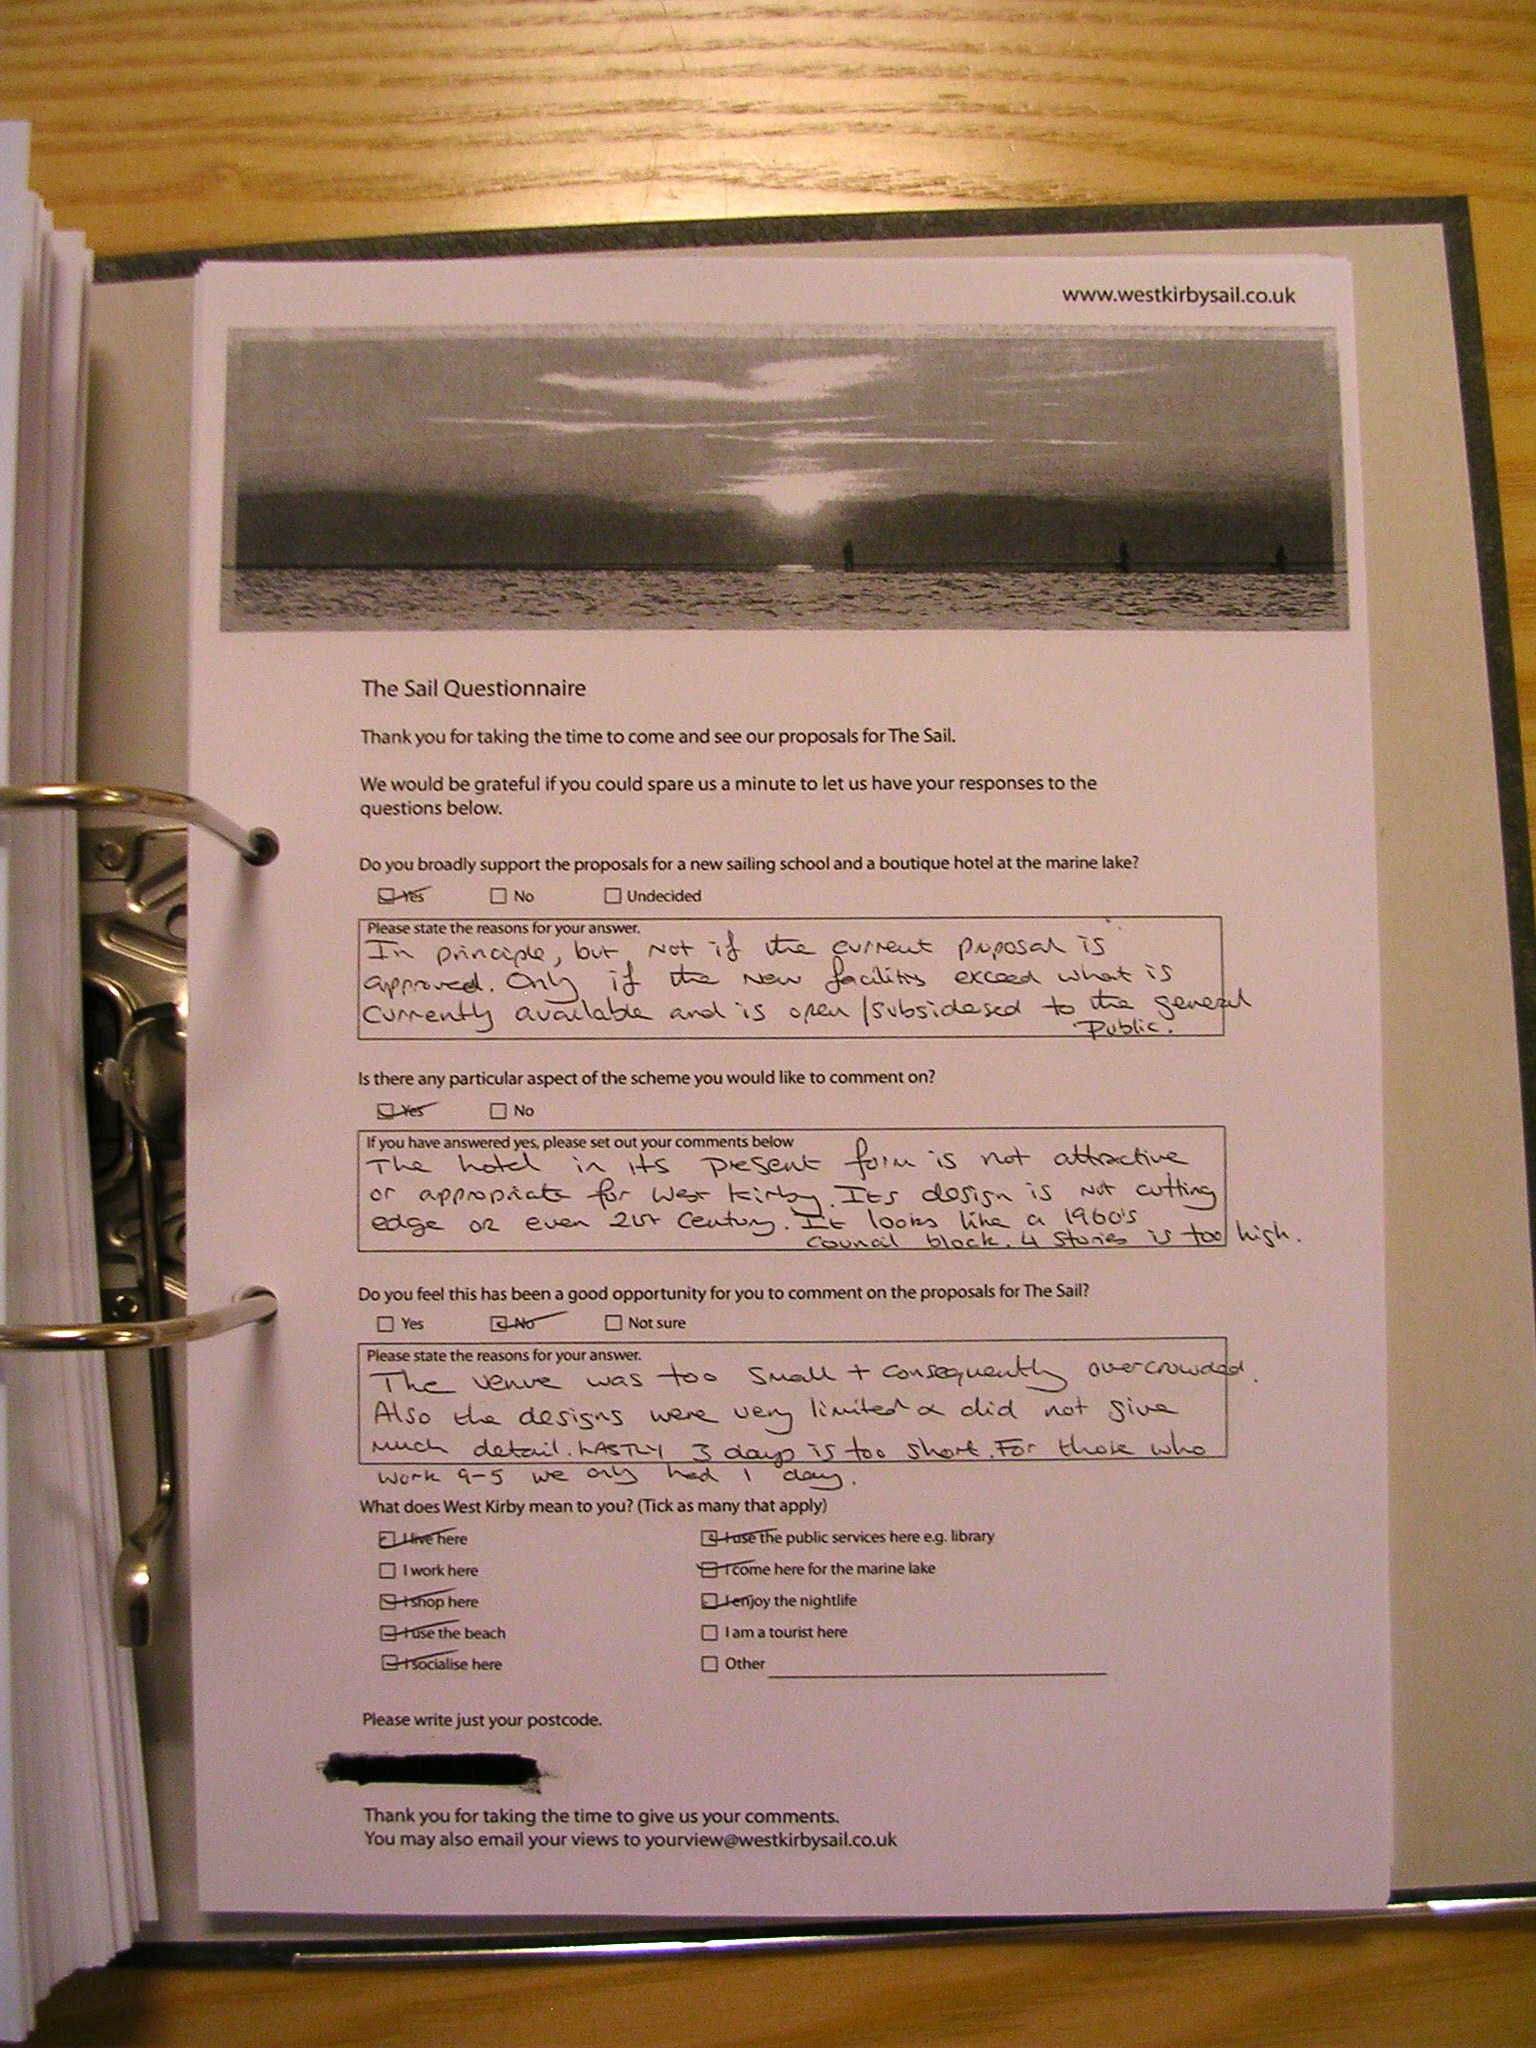 www.westkirbysail.co.uk
The Sail Questionnaire
Thank you for taking the time to come and see our proposals for The Sail.
We would be grateful if you could spare us a minute to let us have your responses to the
questions below.
Do you broadly support the proposals for a new sailing school and a boutique hotel at the marine lake?
Yes No Undecided
Please state the reasons for your answer.
In principle, but not if the current proposal is
approved. Only if the new facilities exceed what is
currently available and is open/subsidesed to the general
Public.
Is there any particular aspect of the scheme you would like to comment on?
Yes No
If you have answered yes, please set out your comments below
The hotel in its present form is not attractive
or appropriate for West Kirby. Its design is not cutting
edge or even 21st Century. It looks like a 1960's
Council block. 4 Stories is too high.
Do you feel this has been a good opportunity for you to comment on the proposals for The Sail?
Yes No Not sure
Please state the reasons for your answer.
The venue was too small + consequently overcrowded.
Also the designs were very limited & did not give
much detail. LASTLY 3 days is too short. For those who
work 9-5 we only had 1 day.
What does West Kirby mean to you? (Tick as many that apply)
I live here I use the public services here e.g. library
I work here I come here for the marine lake
I shop here I enjoy the nightlife
I use the beach I am a tourist here
I socialise here Other
Please write just your postcode.
Thank you for taking the time to give us your comments.
You may also email your views to yourview@westkirbysail.co.uk